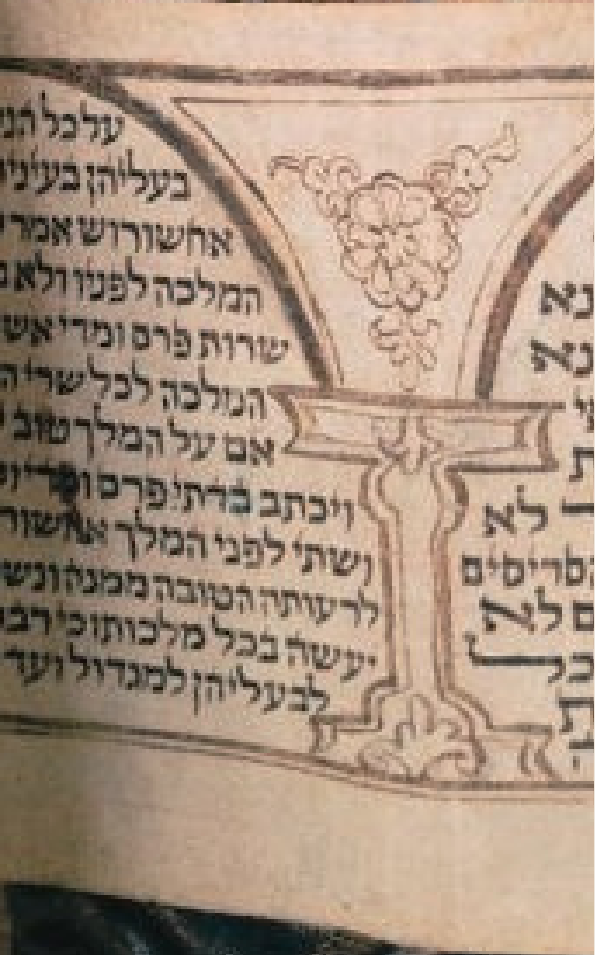 לא
הסריסים
לא
על כל הנ
בעליהן בעיני
אחשורוש אמר
המלכה לפניו ולא
שרות פרס ומדי אש
המלכה לכל שרי ה
אם על המלך טוב
ויכתב בדתי פרס ומדי
ושתי לפני המלך אחשור
לרעותה הטובה ממנה ונש
יעשה בכל מלכותו כי רב
לבעליהן למגדול ועד